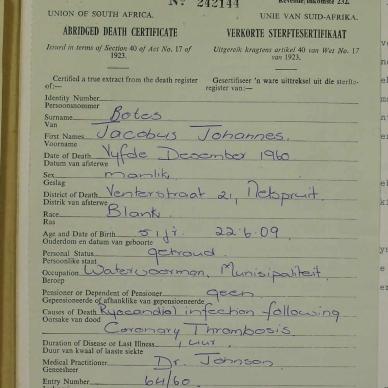 No 242144
UNION OF SOUTH AFRICA. UNIE VAN SUID-AFRIKA.
ABRIDGED DEATH CERTIFICATE VERKORTE STERFTESERTIFIKAAT
Issued in terms of Section 40 of Act No. 17 of 1923. Uitgereik kragtens artikel 40 van Wet No. 17 van 1923.
Certified a true extract from the death register of:— Gesertifiseer 'n ware uittreksel uit die sterfte-register van:—
Identity Number
Persoonsnommer
Surname Botes
Van
First Names Jacobus Johannes.
Voorname
Date of Death Vyfde Desember 1960
Datum van afsterwe
Sex manlik
Geslag
District of Death Venterstraat 21, Nelspruit.
Distrik van afsterwe
Race Blank.
Ras
Age and Date of Birth 51 jr. 22.6.09
Ouderdom en datum van geboorte
Personal Status getroud.
Persoonlike staat
Occupation Watervoorman, Munisipaliteit.
Beroep
Pensioner or Dependent of Pensioner geen
Gepensioeneerde of afhanklike van gepensioeneerde
Causes of Death Myocardial infection following
Oorsake van dood Coronary Thrombosis
Duration of Disease or Last Illness, 1 uur
Duur van kwaal of laaste siekte
Medical Practitioner Dr. Johnson
Geneesheer
Entry Number 64/60